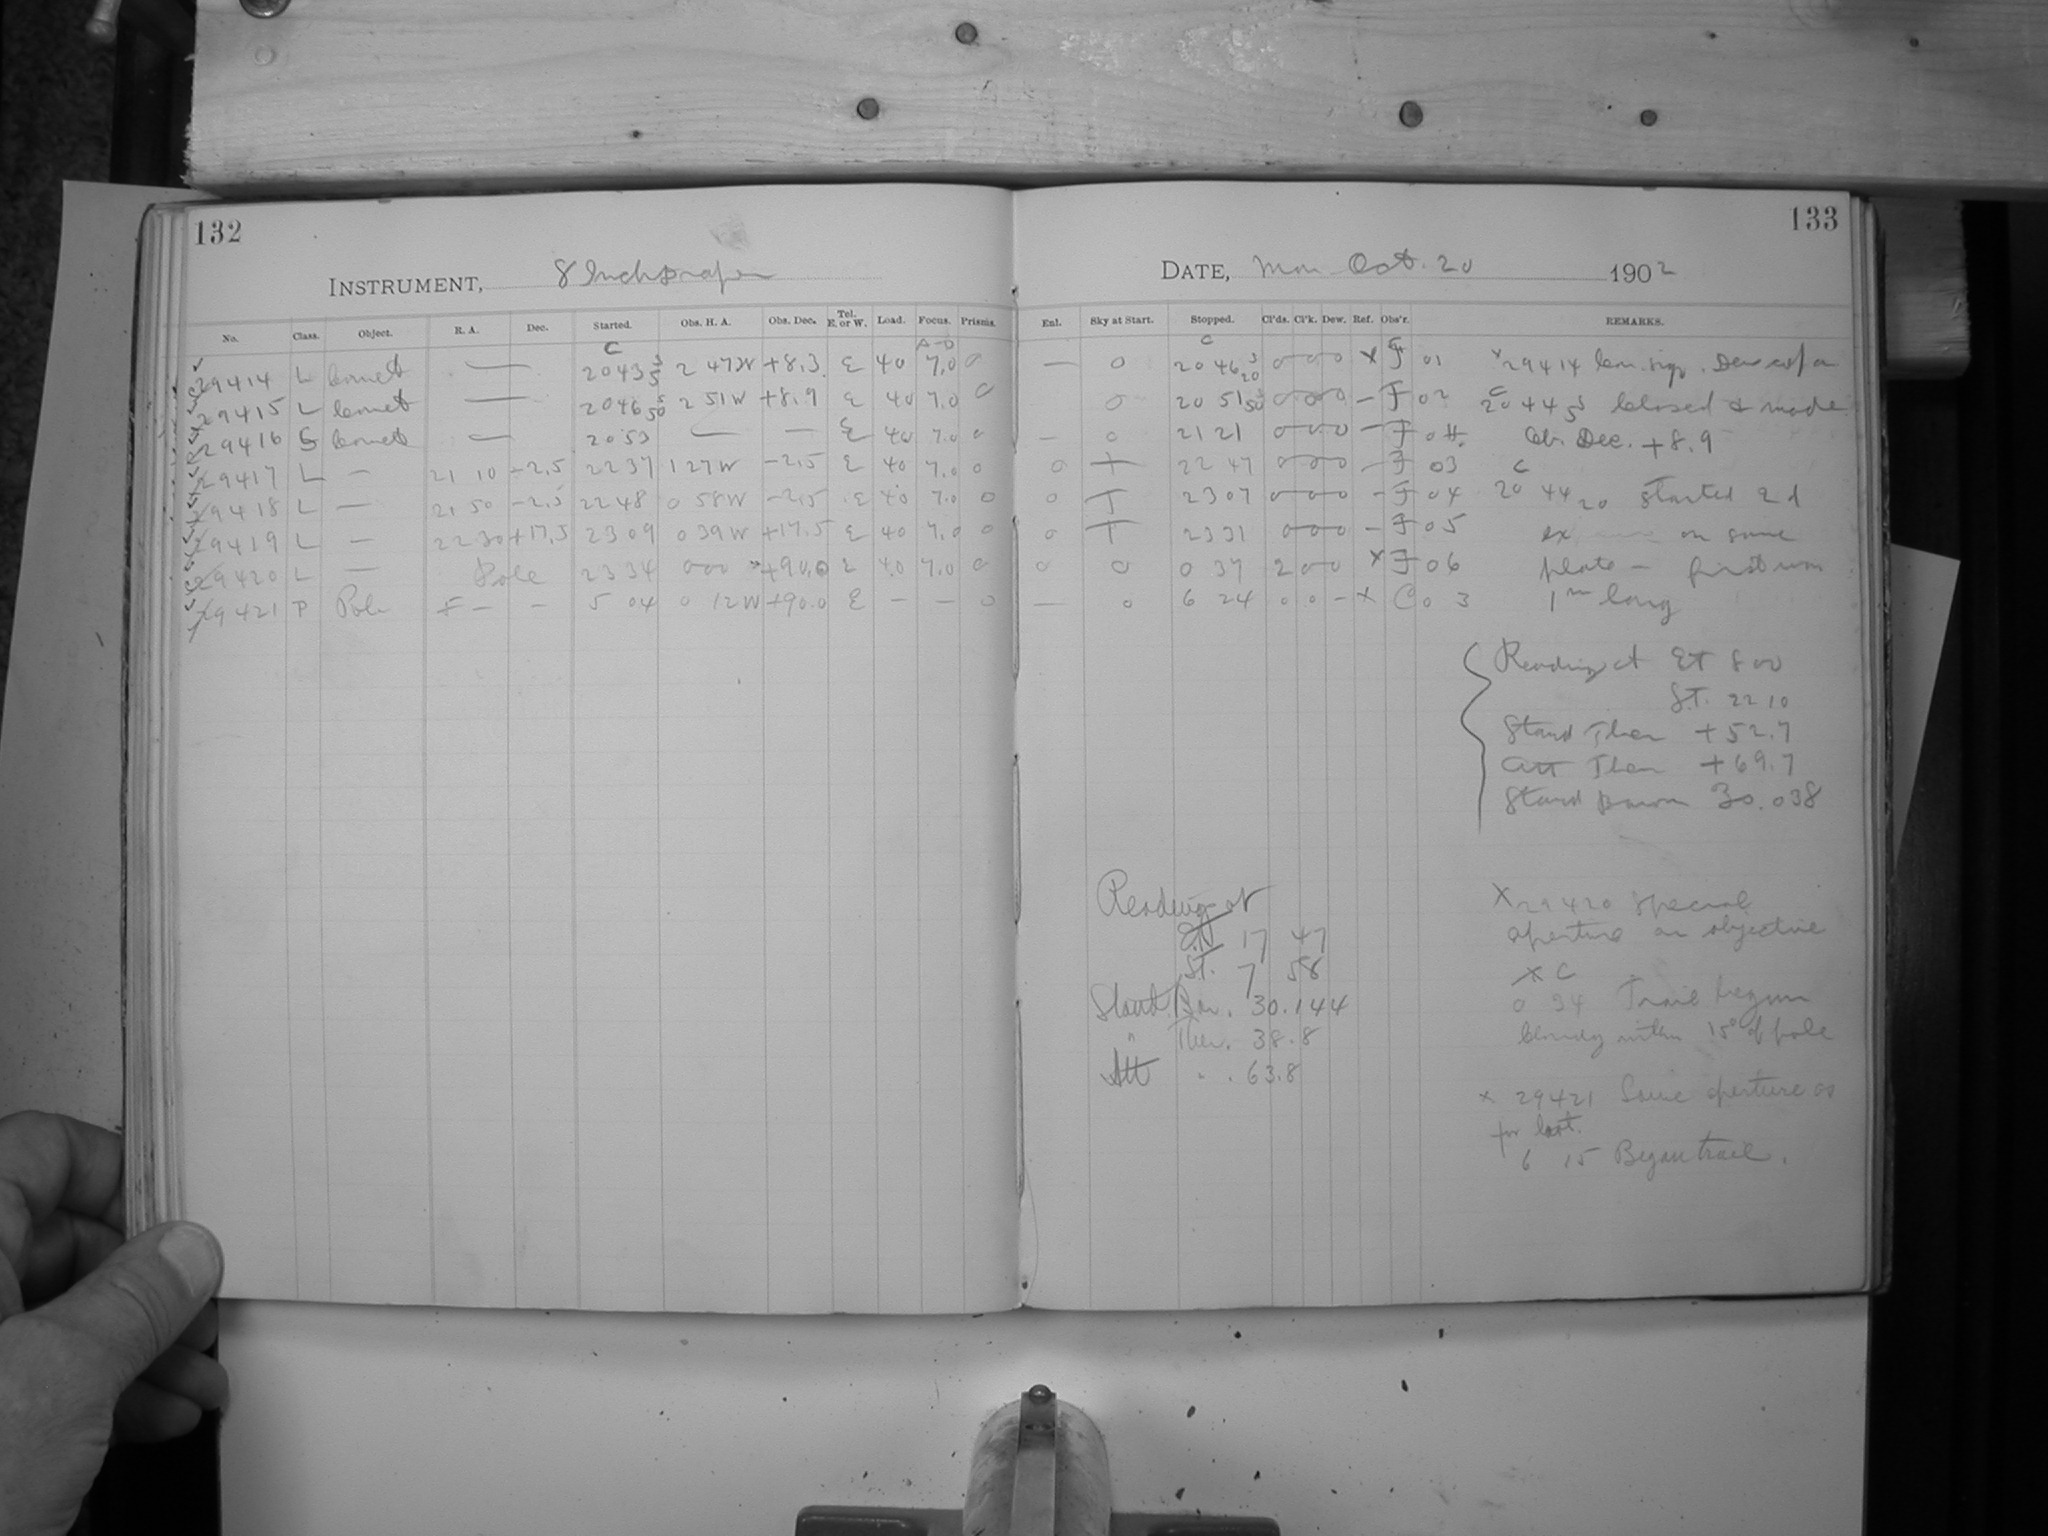 132
133
INSTRUMENT, 8 Inch Draper
DATE, Mon Oct. 20 1902
No. Class. Object. R. A. Dec. Started. Obs. H. A. Obs. Dec. Tel. E. or W. Load. Focus. Prisms.
Enl. Sky at Start. Stopped. Cl'ds. Cl'k. Dew. Ref. Obs'r. REMARKS.
29414 L Comet — 2 47 W +8.3 E 40 7.0 0
29415 L Comet — 2 51 W +8.9 E 40 7.0 0
29416 G Comet — 20 53 — — E 40 7.0 0
29417 L — 21 10 -2.5 22 37 1 27 W -2.5 E 40 7.0 0
29418 L — 21 50 -2.5 22 48 0 58 W -2.5 E 40 7.0 0
29419 L — 22 30 +17.5 23 09 0 39 W +17.5 E 40 7.0 0
29420 L — Pole 23 34 0 00 +90.0 E 40 7.0 0
29421 P Pole — — 5 04 0 12 W +90.0 E — — 0
— 0 20 46 20 0 0 0 X F 01
0 20 51 50 0 0 0 - F 02
— 0 21 21 0 0 0 - F
0 T 22 47 0 0 0 - F 03
0 T 23 07 0 0 0 - F 04
0 T 23 31 0 0 0 - F 05
0 0 0 37 2 0 0 X F 06
— 0 6 24 0 0 - X C 0 3
x 29414
closed & made
Ob. Dec. +8.9
20 44 20 started 2d
ex on same
plate - first was
1m long
Reading at ET 8 00
S.T. 22 10
Stand Ther +52.7
Att Ther +69.7
Stand Barom 30.038
Reading at
17 47
S.T. 7 58
Stand. Bar. 30.144
" Ther. 38.8
Att " . 63.8
X 29420 special
aperture on objective
x C
0 34 Trail begun
Cloudy within 15° of pole
x 29421 Same aperture as
for last.
6 15 Began trail.